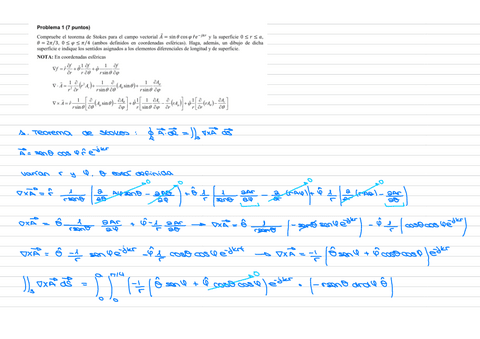 Problema 1 (7 puntos)
Compruebe el teorema de Stokes para el campo vectorial A⃗ = sin θ cos φ r̂ e^{-jkr} y la superficie 0 ≤ r ≤ a,
θ = 2π/3, 0 ≤ φ ≤ π/4 (ambos definidos en coordenadas esféricas). Haga, además, un dibujo de dicha
superficie e indique los sentidos asignados a los elementos diferenciales de longitud y de superficie.
NOTA: En coordenadas esféricas
∇f = r̂ ∂f/∂r + θ̂ 1/r ∂f/∂θ + φ̂ 1/(r sin θ) ∂f/∂φ
∇·A⃗ = 1/r² ∂/∂r (r² A_r) + 1/(r sin θ) ∂/∂θ (A_θ sin θ) + 1/(r sin θ) ∂A_φ/∂φ
∇×A⃗ = r̂ 1/(r sin θ) [∂/∂θ (A_φ sin θ) − ∂A_θ/∂φ] + θ̂ 1/r [1/(sin θ) ∂A_r/∂φ − ∂/∂r (r A_φ)] + φ̂ 1/r [∂/∂r (r A_θ) − ∂A_r/∂θ]
1. Teorema de Stokes : ∮ A⃗ dl⃗ = ∬_S ∇×A⃗ dS⃗
A⃗ = senθ cos φ r̂ e^{-jkr}
varían r y φ, θ está definida
∇×A⃗ = r̂ 1/(r senθ) [∂/∂θ Aφ senθ − ∂Aθ/∂φ] + θ̂ 1/r [1/senθ ∂Ar/∂φ − ∂/∂r (r Aφ)] + φ̂ 1/r [∂/∂r (r Aθ) − ∂Ar/∂θ]
∇×A⃗ = θ̂ 1/(r senθ) ∂Ar/∂φ + φ̂ -1/r ∂Ar/∂θ → ∇×A⃗ = θ̂ 1/(r senθ) (−senθ senφ e^{-jkr}) − φ̂ 1/r (cosθ cosφ e^{-jkr})
∇×A⃗ = θ̂ -1/r senφ e^{-jkr} − φ̂ 1/r cosθ cosφ e^{-jkr} → ∇×A⃗ = -1/r (θ̂ senφ + φ̂ cosθ cosφ) e^{-jkr}
∬_S ∇×A⃗ dS⃗ = ∫_0^a ∫_0^{π/4} (-1/r (θ̂ senφ + φ̂ cosθ cosφ) e^{-jkr}) · (−r senθ dr dφ θ̂)